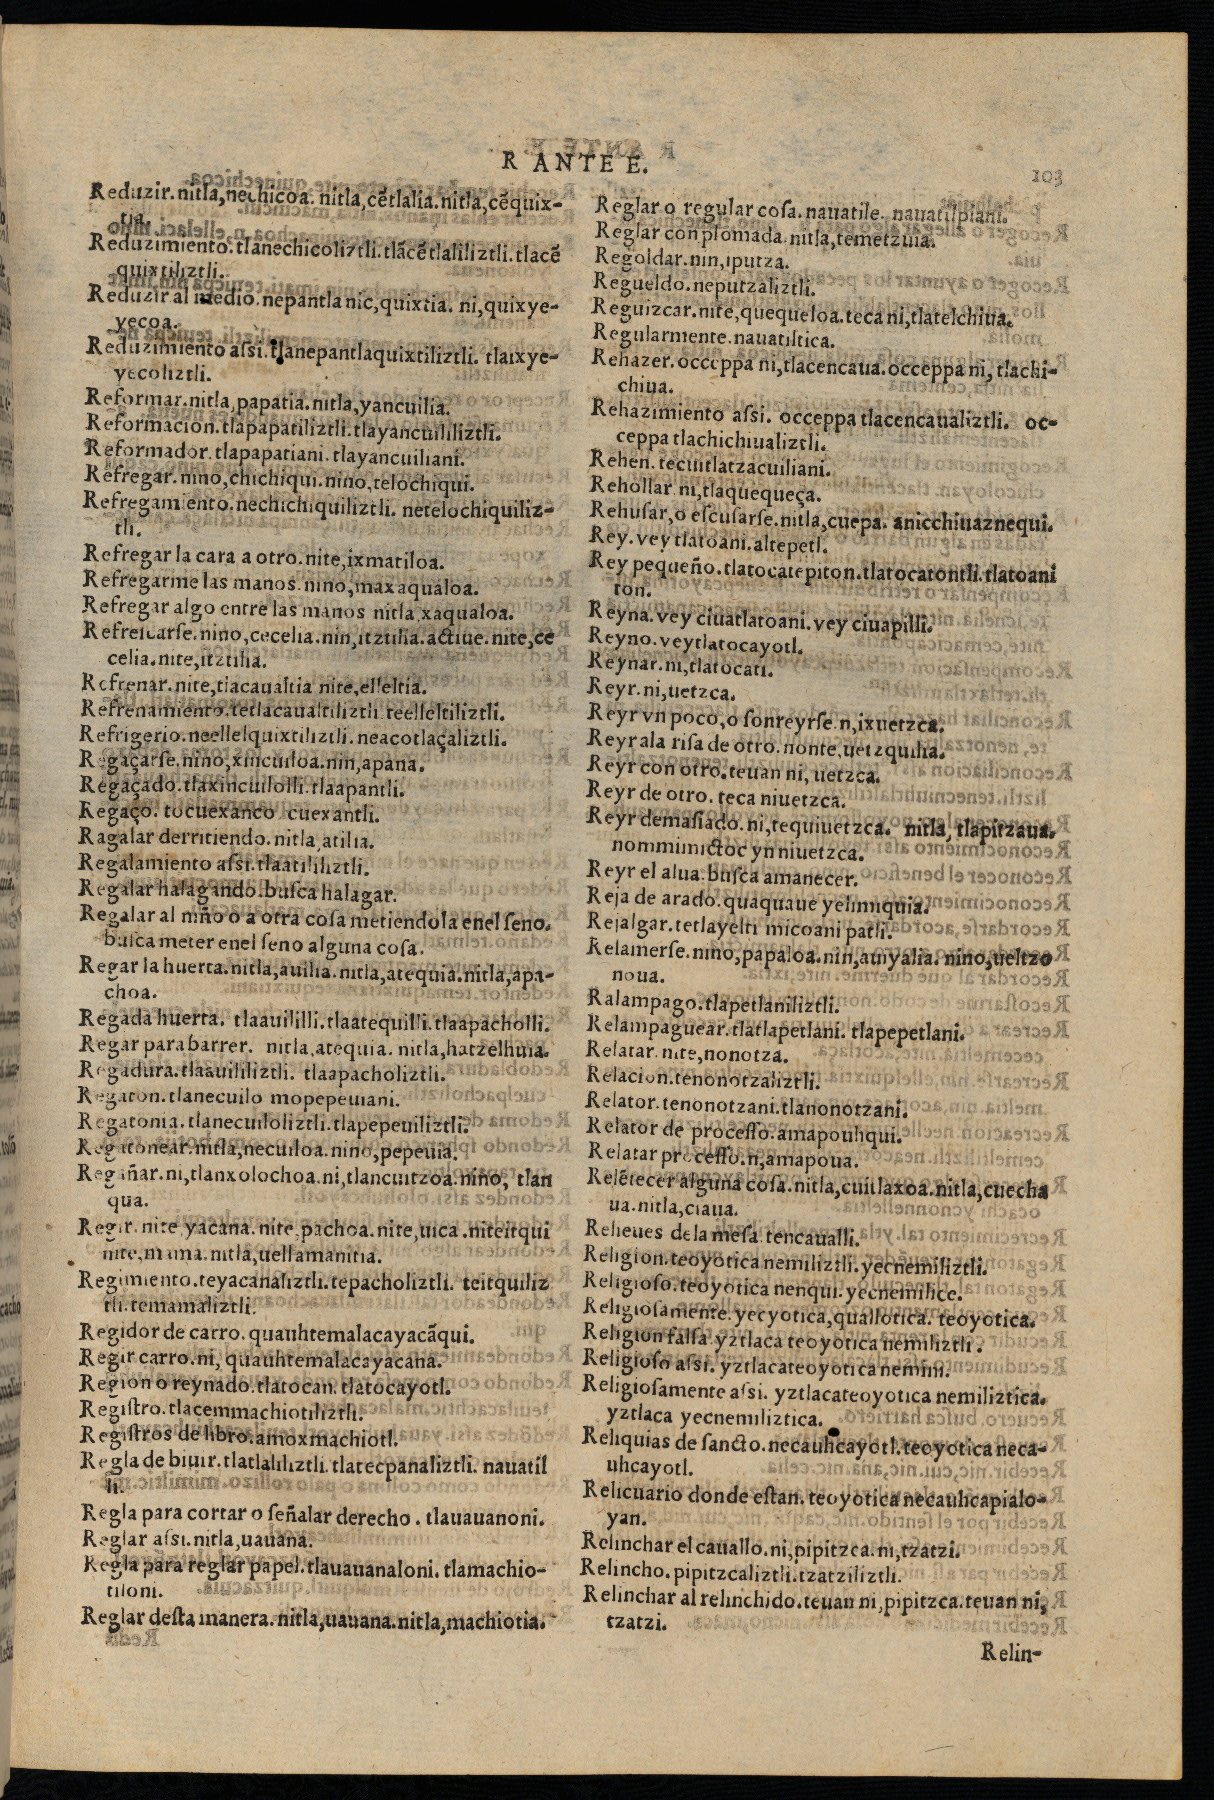 R ANTE E.
103
Reduzir. nitla, nechicoa. nitla, cētlalia. nitla, cēquix-
tia.
Reduzimiento. tlanechicoliztli. tlacētlaliliztli. tlacē
quixtiliztli.
Reduzir al medio. nepantla nic, quixtia. ni, quixye-
yecoa.
Reduzimiento aſsi. tlanepantlaquixtiliztli. tlaixye-
yecoliztli.
Reformar. nitla, papatia. nitla, yancuilia.
Reformacion. tlapapatiliztli. tlayancuililiztli.
Reformador. tlapapatiani. tlayancuiliani.
Refregar. nino, chichiqui. nino, telochiqui.
Refregamiento. nechichiquiliztli. netelochiquiliz-
tli.
Refregar la cara a otro. nite, ixmatiloa.
Refregarme las manos. nino, maxaqualoa.
Refregar algo entre las manos nitla, xaqualoa.
Refreſcarſe. nino, cecelia. nin, itztilia. actiue. nite, ce
celia. nite, itztilia.
Refrenar. nite, tlacaualtia nite, elleltia.
Refrenamiento. tetlacaualtiliztli. teelleltiliztli.
Refrigerio. neellelquixtiliztli. neacotlaçaliztli.
Regaçarſe. nino, xincuiloa. nin, apana.
Regaçado. tlaxincuilolli. tlaapantli.
Regaço. tocuexanco cuexantli.
Ragalar derritiendo. nitla, atilia.
Regalamiento aſsi. tlaatililiztli.
Regalar halagando. buſca halagar.
Regalar al niño o a otra coſa metiendola enel ſeno.
buſca meter enel ſeno alguna coſa.
Regar la huerta. nitla, auilia. nitla, atequia. nitla, apa-
choa.
Regada huerta. tlaauililli. tlaatequilli. tlaapacholli.
Regar para barrer. nitla, atequia. nitla, hatzelhuia.
Regadura. tlaauililiztli. tlaapacholiztli.
Regaton. tlanecuilo mopepeuiani.
Regatonia. tlanecuiloliztli. tlapepeuiliztli.
Regatonear. nitla, necuiloa. nino, pepeuia.
Regañar. ni, tlanxolochoa. ni, tlancuitzoa. nino, tlan
qua.
Regir. nite yacana. nite, pachoa. nite, uica. niteitqui
nite, mama. nitla, uellamanitia.
Regimiento. teyacanaliztli. tepacholiztli. teitquiliz
tli. temamaliztli.
Regidor de carro. quauhtemalacayacāqui.
Regir carro. ni, quauhtemalacayacana.
Region o reynado. tlatocan. tlatocayotl.
Regiſtro. tlacemmachiotiliztli.
Regiſtros de libro. amoxmachiotl.
Regla de biuir. tlatlaliliztli. tlatecpanaliztli. nauatil
li.
Regla para cortar o ſeñalar derecho. tlauauanoni.
Reglar aſsi. nitla, uauana.
Regla para reglar papel. tlauauanaloni. tlamachio-
tiloni.
Reglar deſta manera. nitla, uauana. nitla, machiotia.
Reglar o regular coſa. nauatile. nauatilpiani.
Reglar con plomada. nitla, temetzuia.
Regoldar. nin, iputza.
Regueldo. neputzaliztli.
Reguizcar. nite, quequeloa. teca ni, tlatelchiua.
Regularmente. nauatiltica.
Rehazer. occeppa ni, tlacencaua. occeppa ni, tlachi-
chiua.
Rehazimiento aſsi. occeppa tlacencaualiztli. oc-
ceppa tlachichiualiztli.
Rehen. tecuitlatzacuiliani.
Rehollar. ni, tlaquequeça.
Rehuſar, o eſcuſarſe. nitla, cuepa. anicchiuaznequi.
Rey. vey tlatoani. altepetl.
Rey pequeño. tlatocatepiton. tlatocatontli. tlatoani
ton.
Reyna. vey ciuatlatoani. vey ciuapilli.
Reyno. veytlatocayotl.
Reynar. ni, tlatocati.
Reyr. ni, uetzca.
Reyr vn poco, o ſonreyrſe. n, ixuetzca.
Reyr ala riſa de otro. nonte, uetzquilia.
Reyr con otro. teuan ni, uetzca.
Reyr de otro. teca niuetzca.
Reyr demaſiado. ni, tequiuetzca. nitla, tlapitzaua.
nommimictoc yn niuetzca.
Reyr el alua. buſca amanecer.
Reja de arado. quaquaue yelimiquia.
Rejalgar. tetlayelti micoani patli.
Relamerſe. nino, papaloa. nin, auiyalia. nino, ueltzo
noua.
Ralampago. tlapetlaniliztli.
Relampaguear. tlatlapetlani. tlapepetlani.
Relatar. nite, nonotza.
Relacion. tenonotzaliztli.
Relator. tenonotzani. tlanonotzani.
Relator de proceſſo. amapouhqui.
Relatar proceſſo. n, amapoua.
Relētecer alguna coſa. nitla, cuitlaxoa. nitla, cuecha
ua. nitla, ciaua.
Relieues dela meſa. tencaualli.
Religion. teoyotica nemiliztli. yecnemiliztli.
Religioſo. teoyotica nenqui. yecnemilice.
Religioſamente. yecyotica, quallotica. teoyotica.
Religion falſa. yztlaca teoyotica nemiliztli.
Religioſo aſsi. yztlacateoyotica nemini.
Religioſamente aſsi. yztlacateoyotica nemiliztica.
yztlaca yecnemiliztica.
Reliquias de ſancto. necauhcayotl. teoyotica neca-
uhcayotl.
Relicuario donde eſtan. teoyotica necauhcapialo-
yan.
Relinchar el cauallo. ni, pipitzca. ni, tzatzi.
Relincho. pipitzcaliztli. tzatziliztli.
Relinchar al relinchido. teuan ni, pipitzca. teuan ni,
tzatzi.
Relin-